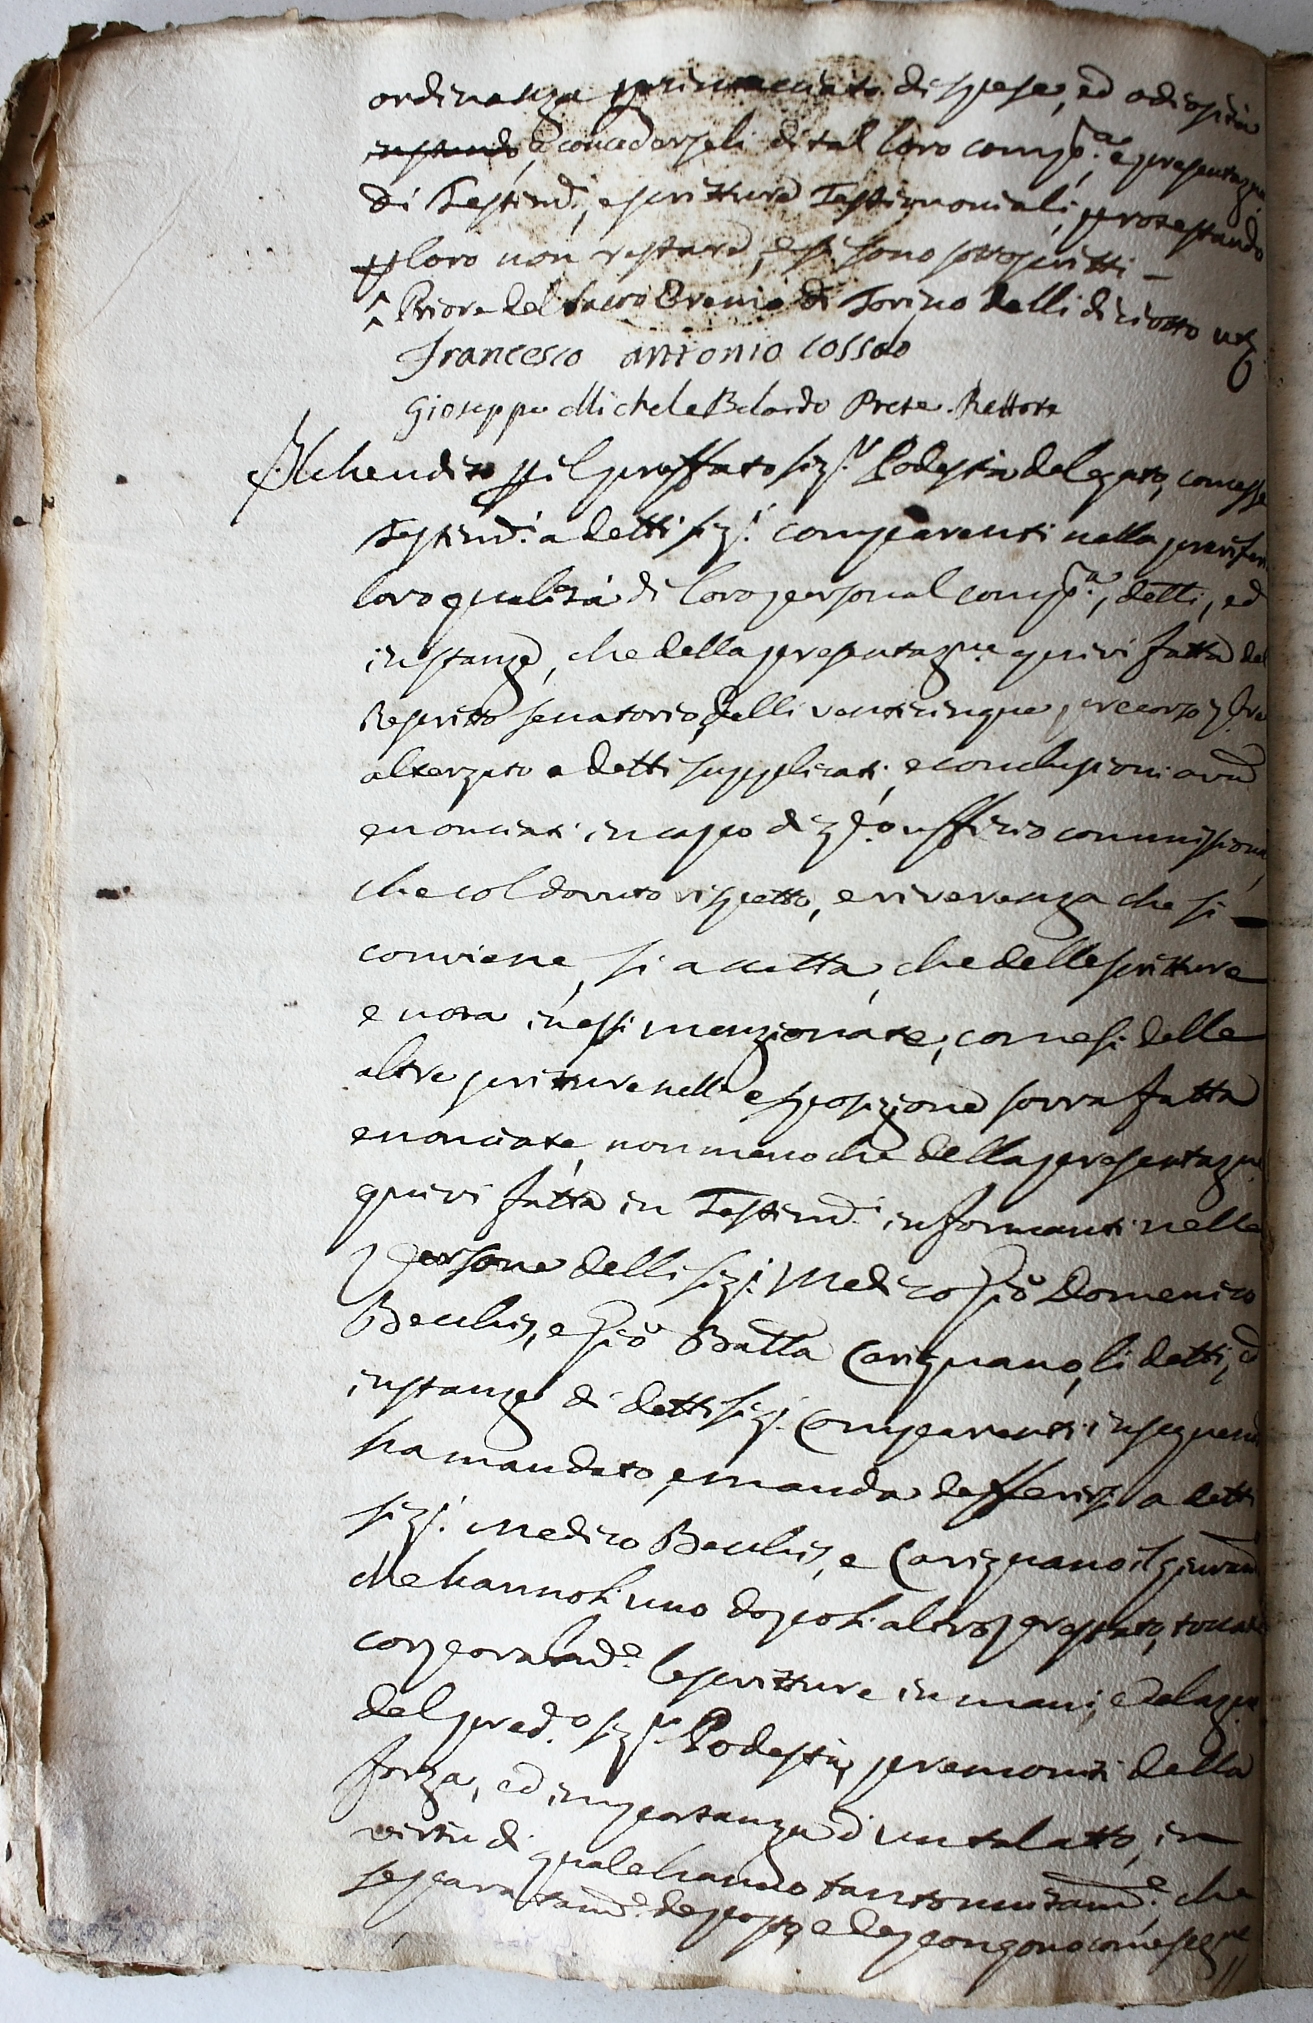 ordinanza pronunciata di spese, ed ad ogni
instando concederseli di tal loro comp.ª e presentazne
di Testim.li, e scritture Testimoniali, protestando
p loro non restare, e si sono sottoscritti –
^ Priore del Sacro Eremo di Torino delli diciotto
Francesco Antonio Cossao
Gioseppe Michele Belardo Prete Rettore
Il che udito p il preffato sig.r Podestà delegato, concesse
Testim.li a detti sig.ri comparenti nella
loro qualità di loro personal comp.ª, detti, ed
instanze, che della presentazne quivi fatta del
Rescritto senatorio delli venticinque, precorso
a detti supplicati, e conclusioni
enonciati in capo di uffizio commissione
che col dovuto rispetto, e riverenza che si
conviene, si accetta, che delle scritture
e nota in essi menzionate, come si delle
altre scritture nell'esposizione sovra fatta
enonciate, non meno che della presentazne
quivi fatta in Testim.li informanti nelle
Persone delli sig.ri Medico Gio Domenico
Becchis, e Gio Batta Carignano, li detti, ed
instanze di detti sig.ri Comparenti
ha mandato, e manda defferirsi a detti
sig.ri Medico Becchis, e Carignano il giuram
che hanno li uno dopo li altro prestato, toccate
corporalm.e le scritture in mani,
del pred.o sig.r Podestà, premoniti della
forza, ed importanza d'un tal atto, in
virtù di quale hanno tanto unitam.e che
separatam.e deposto, e depongono come segue //